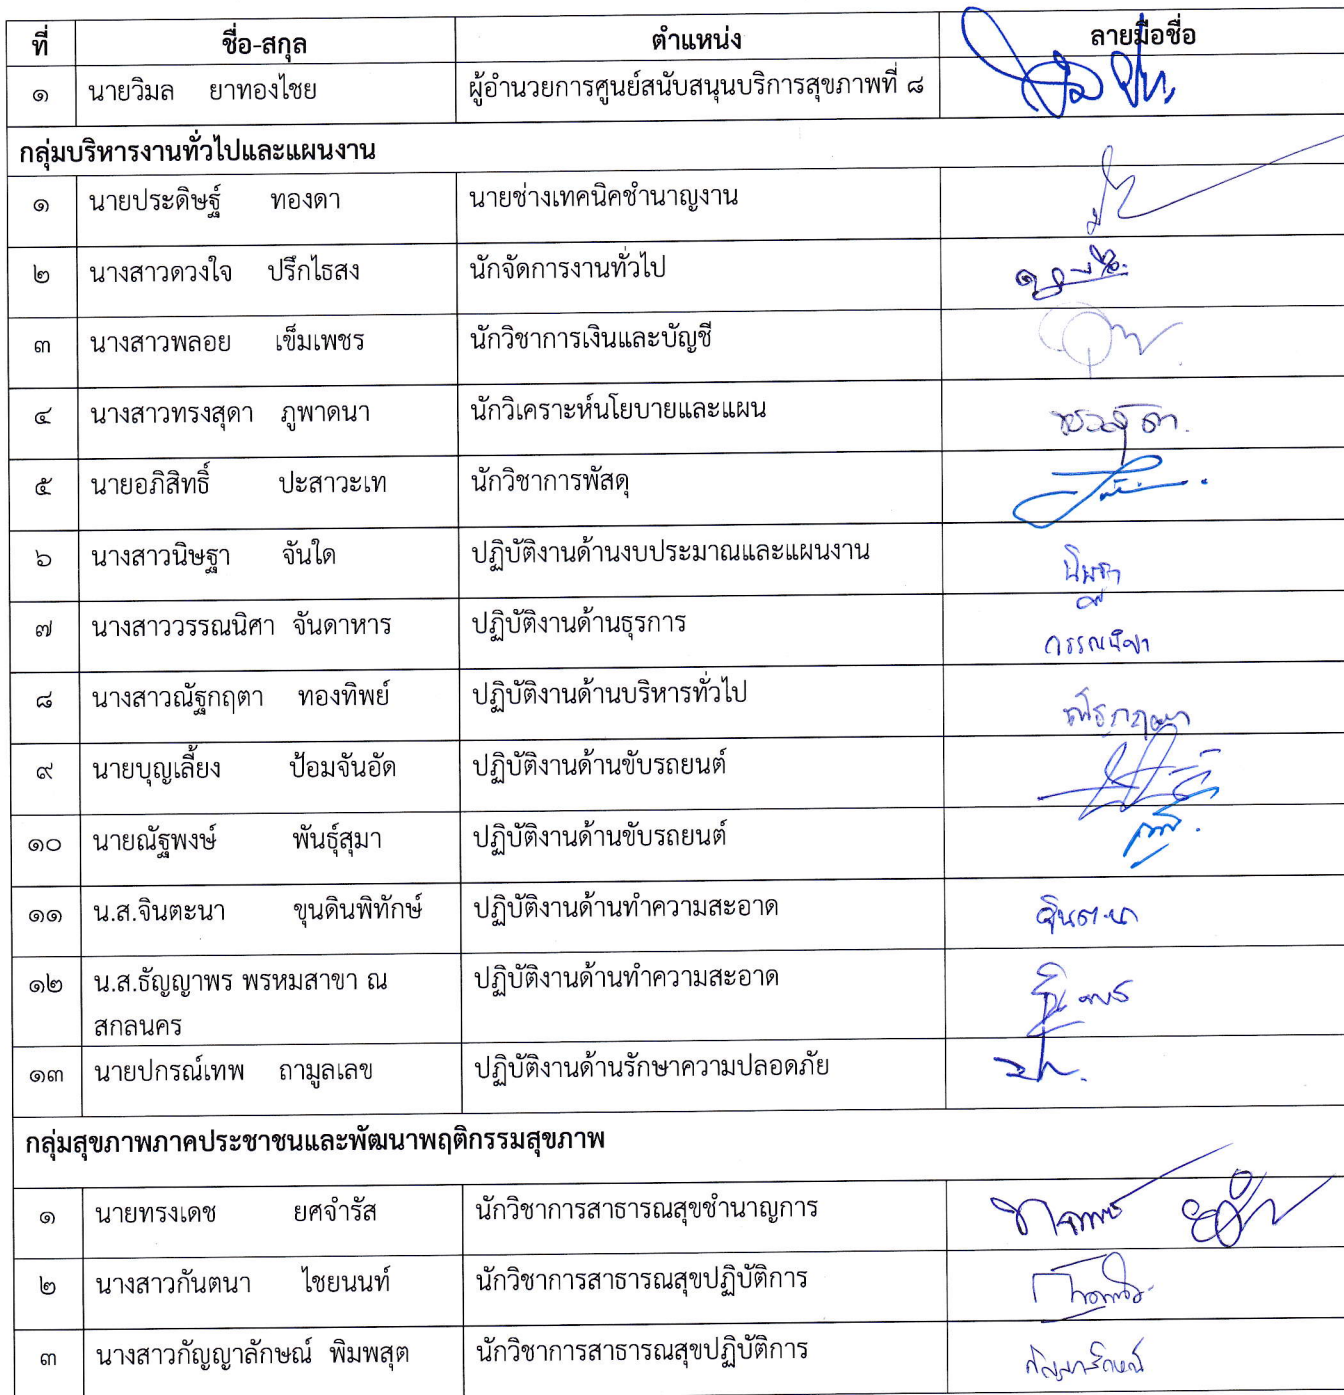 ที่ ชื่อ-สกุล ตำแหน่ง ลายมือชื่อ
๑ นายวิมล ยาทองไชย ผู้อำนวยการศูนย์สนับสนุนบริการสุขภาพที่ ๘
กลุ่มบริหารงานทั่วไปและแผนงาน
๑ นายประดิษฐ์ ทองดา นายช่างเทคนิคชำนาญงาน
๒ นางสาวดวงใจ ปรึกไธสง นักจัดการงานทั่วไป
๓ นางสาวพลอย เข็มเพชร นักวิชาการเงินและบัญชี
๔ นางสาวทรงสุดา ภูพาดนา นักวิเคราะห์นโยบายและแผน ทรงสุดา
๕ นายอภิสิทธิ์ ปะสาวะเท นักวิชาการพัสดุ
๖ นางสาวนิษฐา จันใด ปฏิบัติงานด้านงบประมาณและแผนงาน นิษฐา
๗ นางสาววรรณนิศา จันดาหาร ปฏิบัติงานด้านธุรการ วรรณนิศา
๘ นางสาวณัฐกฤตา ทองทิพย์ ปฏิบัติงานด้านบริหารทั่วไป ณัฐกฤตา
๙ นายบุญเลี้ยง ป้อมจันอัด ปฏิบัติงานด้านขับรถยนต์
๑๐ นายณัฐพงษ์ พันธุ์สุมา ปฏิบัติงานด้านขับรถยนต์
๑๑ น.ส.จินตะนา ขุนดินพิทักษ์ ปฏิบัติงานด้านทำความสะอาด จินตะนา
๑๒ น.ส.ธัญญาพร พรหมสาขา ณ ปฏิบัติงานด้านทำความสะอาด
สกลนคร
๑๓ นายปกรณ์เทพ ถามูลเลข ปฏิบัติงานด้านรักษาความปลอดภัย
กลุ่มสุขภาพภาคประชาชนและพัฒนาพฤติกรรมสุขภาพ
๑ นายทรงเดช ยศจำรัส นักวิชาการสาธารณสุขชำนาญการ
๒ นางสาวกันตนา ไชยนนท์ นักวิชาการสาธารณสุขปฏิบัติการ
๓ นางสาวกัญญาลักษณ์ พิมพสุต นักวิชาการสาธารณสุขปฏิบัติการ กัญญาลักษณ์